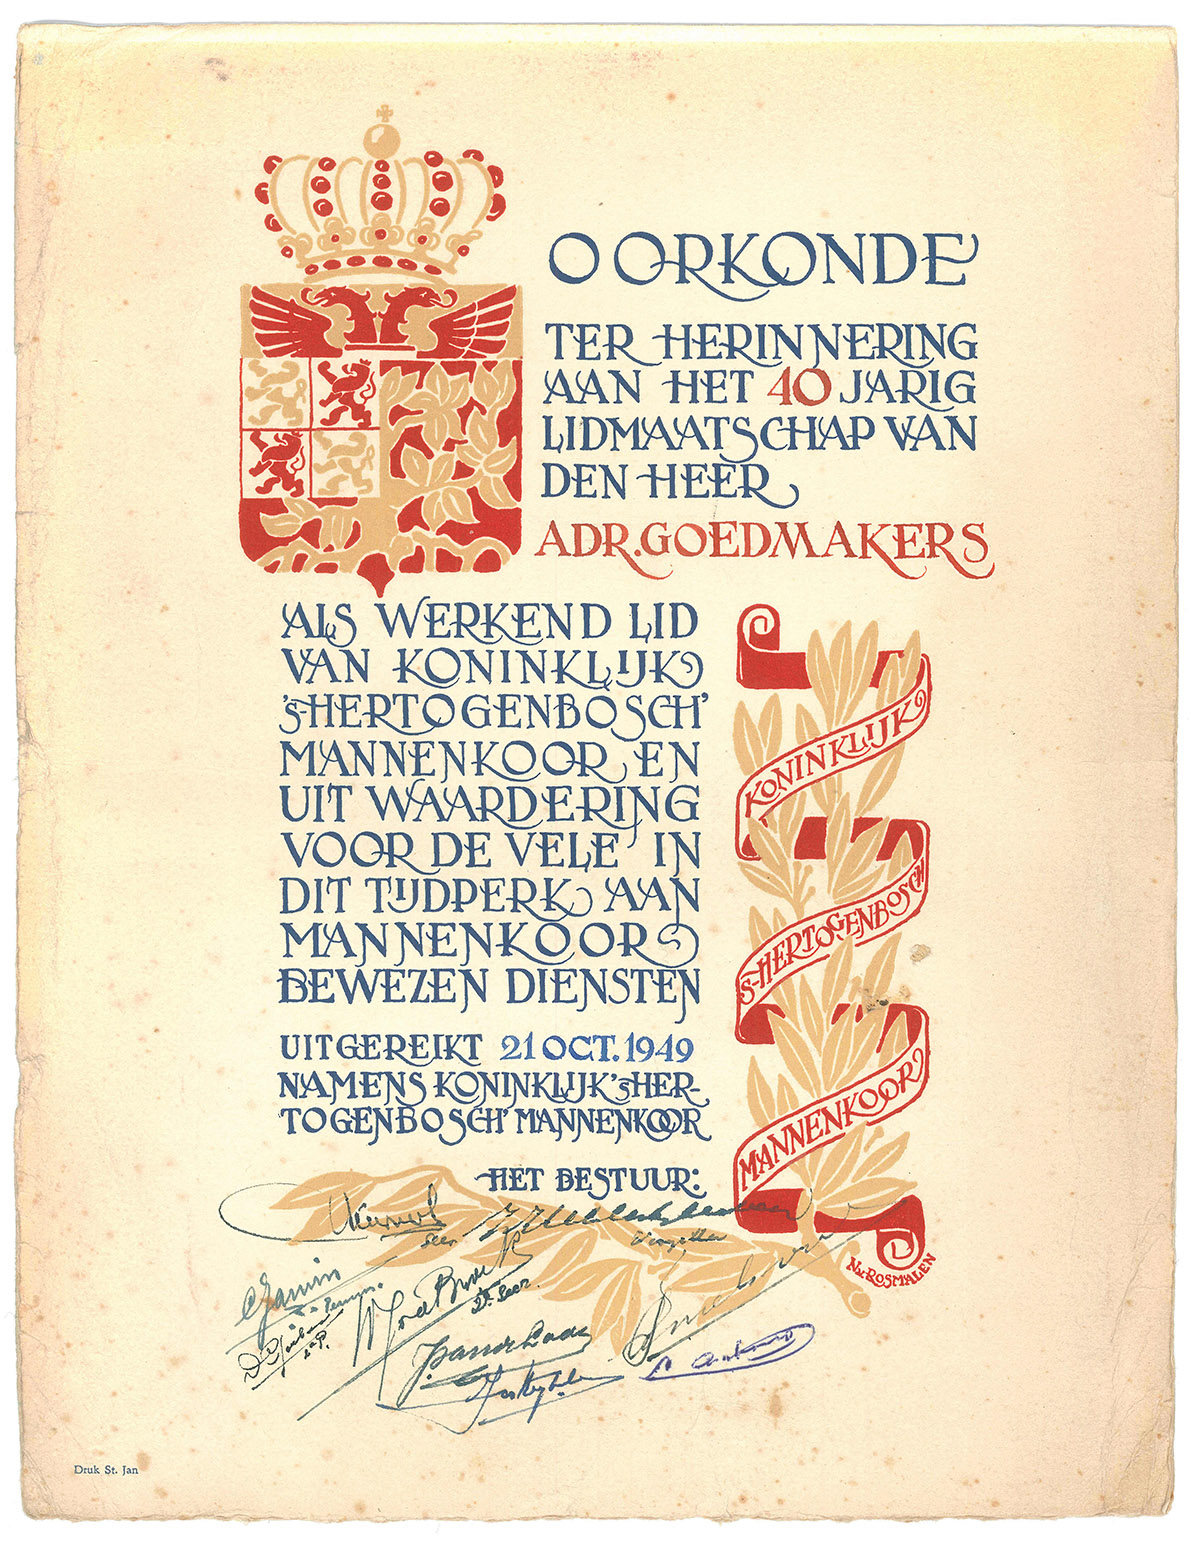 OORKONDE
TER HERINNERING
AAN HET 40 JARIG
LIDMAATSCHAP VAN
DEN HEER
ADR. GOEDMAKERS
ALS WERKEND LID
VAN KONINKLIJK
'S-HERTOGENBOSCH'
MANNENKOOR EN
UIT WAARDERING
VOOR DE VELE IN
DIT TIJDPERK AAN
MANNENKOOR
BEWEZEN DIENSTEN
UITGEREIKT 21 OCT. 1949
NAMENS KONINKLIJK 'S HER-
TOGENBOSCH' MANNENKOOR
HET BESTUUR:
KONINKLIJK
'S-HERTOGENBOSCH
MANNENKOOR
N.v. ROSMALEN
Secr
Voorzitter
2e Secr.
Druk St. Jan